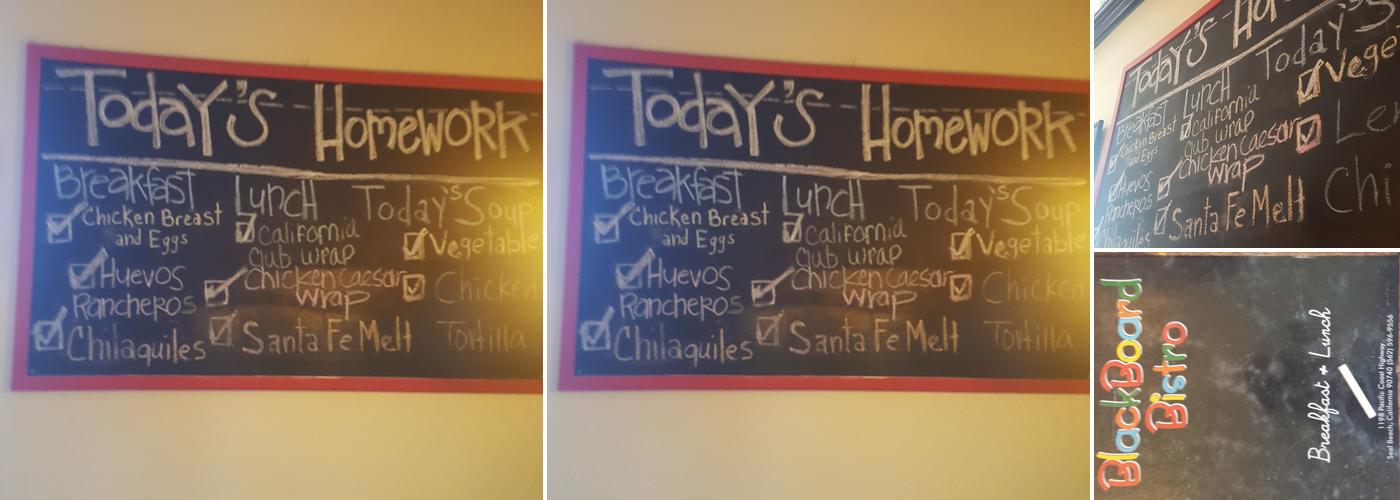 Today's Homework
Breakfast
Chicken Breast
and Eggs
Huevos
Rancheros
Chilaquiles
Lunch
California
club wrap
Chicken Caesar
wrap
Santa Fe Melt
Today's Soup
Vegetable
Chicken
Tortilla
Today's Homework
Breakfast
Chicken Breast
and Eggs
Huevos
Rancheros
Chilaquiles
Lunch
California
club wrap
Chicken Caesar
wrap
Santa Fe Melt
Today's Soup
Vegetable
Chicken
Tortilla
Today's Hom
Breakfast
Chicken Breast
and Eggs
Huevos
Rancheros
Chilaquiles
Lunch
California
club wrap
Chicken Caesar
wrap
Santa Fe Melt
Today's
Vege
Le
Chi
BlackBoard
Bistro
Breakfast + Lunch
1198 Pacific Coast Highway
Seal Beach, California 90740 (562) 596-9656